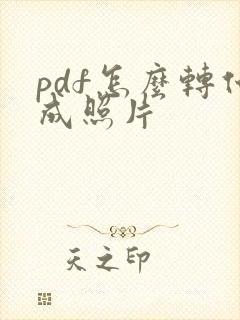 pdf怎麼轉
成照片
天之印